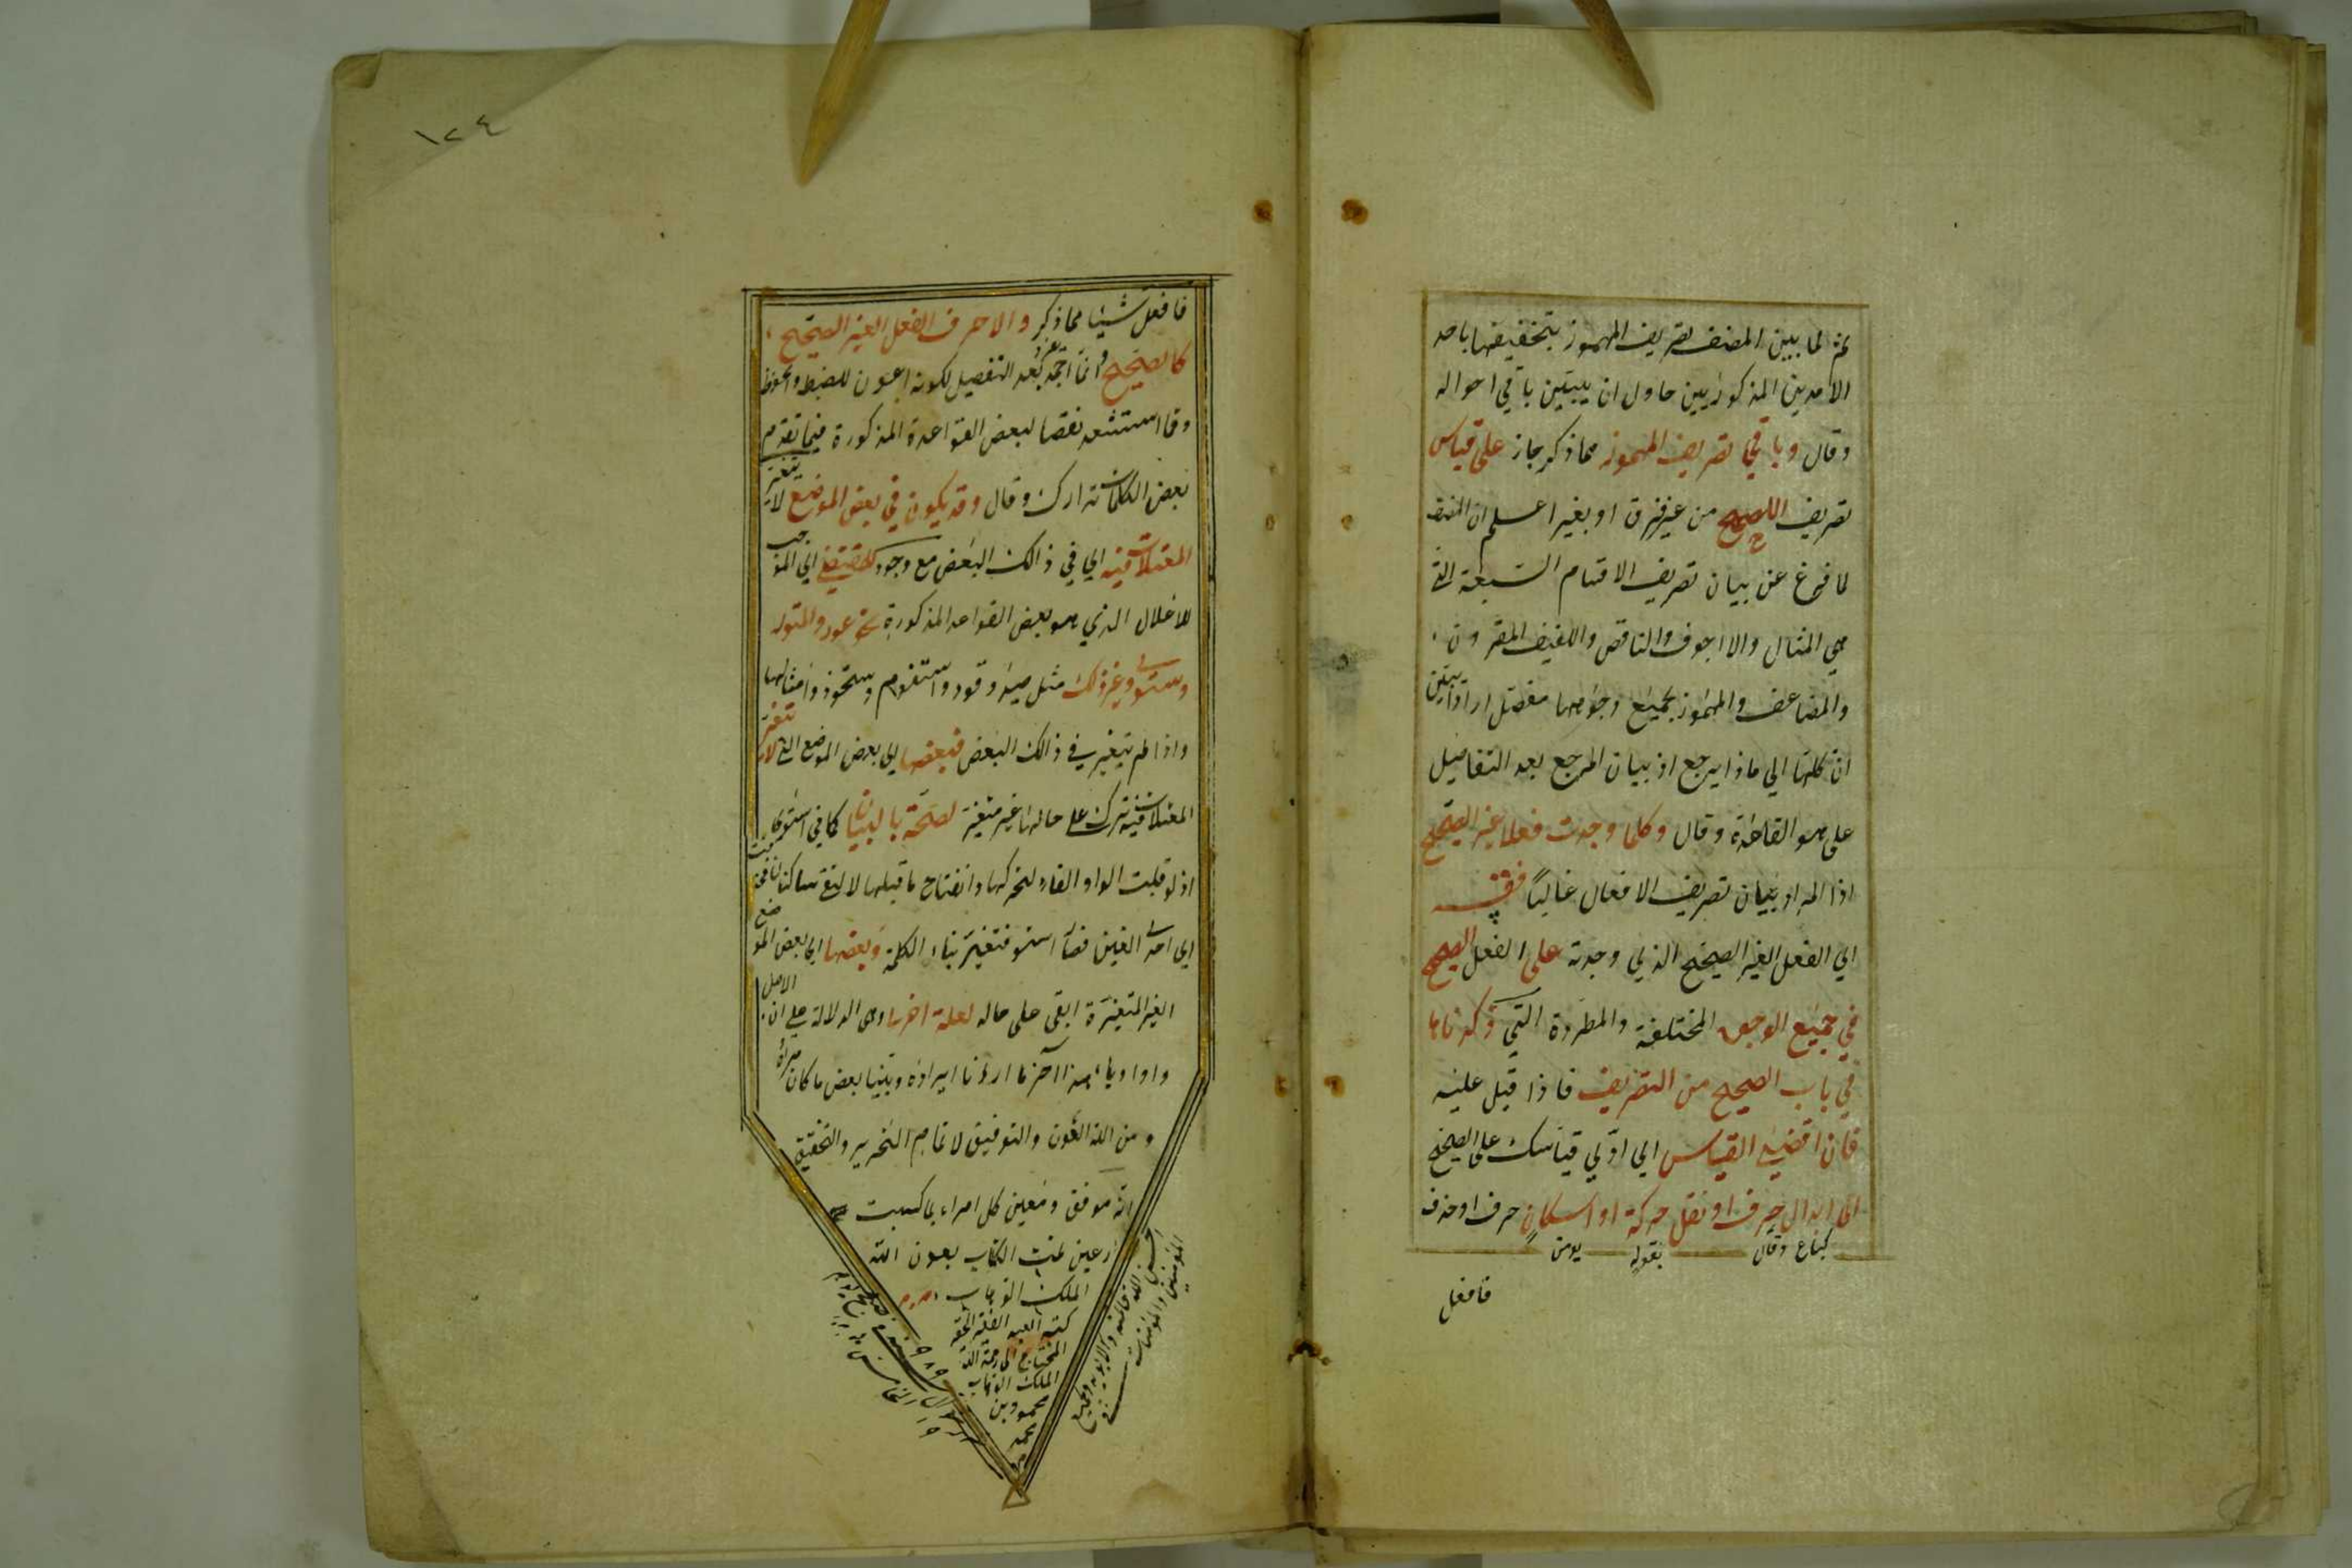 ثم لما بين المصنف تصريف المهموز بتخفيفها باحد
الامرين المذكورين حاول ان يبين باقي احواله
وقال وباقي تصريف المهموز مما ذكر جاز على قياس
تصريف الصحيح من غير فرق او بغير اعلم ان المصنف
لما فرغ عن بيان تصريف الاقسام السبعة التي
هي المثال والاجوف والناقص واللفيف المقرون
والمضاعف والمهموز بجميع وجوهها مفصل اراد ان يبين
ان كلها الي ماذا يرجع اذ بيان المرجع بعد التفاصيل
على هو القاعدة وقال وكلما وجدت فعلا غير الصحيح
اذا المراد ببيان تصريف الافعال غالبا فقس
اي الفعل الغير الصحيح الذي وجدته على الفعل الصحيح
في جميع الوجوه المختلفة والمطردة التي ذكرناها
في باب الصحيح من التصريف فاذا قيل عليه
فان اقتضى القياس اي اولي قياسك على الصحيح
الى ابدال حرف او نقل حركة او اسكان حرف او حذف
كباع وقال بقوله يومن
فافعل
١٢٤
فافعل شيئا مما ذكر والا صرف الفعل الغير الصحيح
كالصحيح وانما بعد التفصيل لكونه اعون للضبط والحفظ
وقا استشعر نقصا لبعض القواعد المذكورة فيما تقدم
بعض الكلمات تدارك وقال وقد يكون في بعض المواضع لا يتغير
المعتلات فيه اي في ذالك البعض مع وجود المقتضي اي الموجب
للاعلال الذي هو بعض القواعد المذكورة نحو عور واعتور
واستوى وغير ذلك مثل صيد وقود واستنوم واستحوذ وامثالها
واذا لم يتغير في ذالك البعض فبعضها اي بعض المواضع التي لا يتغير
المعتلات فيه يترك على حالها غير متغير لصحة بالبيان كما في استوى
اذ لو قلبت الواو الفا لتحركها وانفتاح ما قبلها لالتقى ساكنان
اي احدى الفين فصار استو فتغير بناء الكلمة وبعضها اي بعض المواضع
الغير المتغيرة ابقى على حاله لعلة اخرى وهي الدلالة على ان الاصل
واو او ياء هذا آخر ما اردنا ايراده وبينا بعض ما كان مراده
ومن الله العون والتوفيق لاتمام التحرير والتحقيق
انه موفق ومعين كل امراء بما كسبت
تمت الكتاب بعون الله
الملك الوهاب
كتبه العبد الفقير الحقير
المحتاج الى رحمة الله
الملك الوهاب
محمود بن
محمد
المؤمنين والمؤمنات
٩٨٩